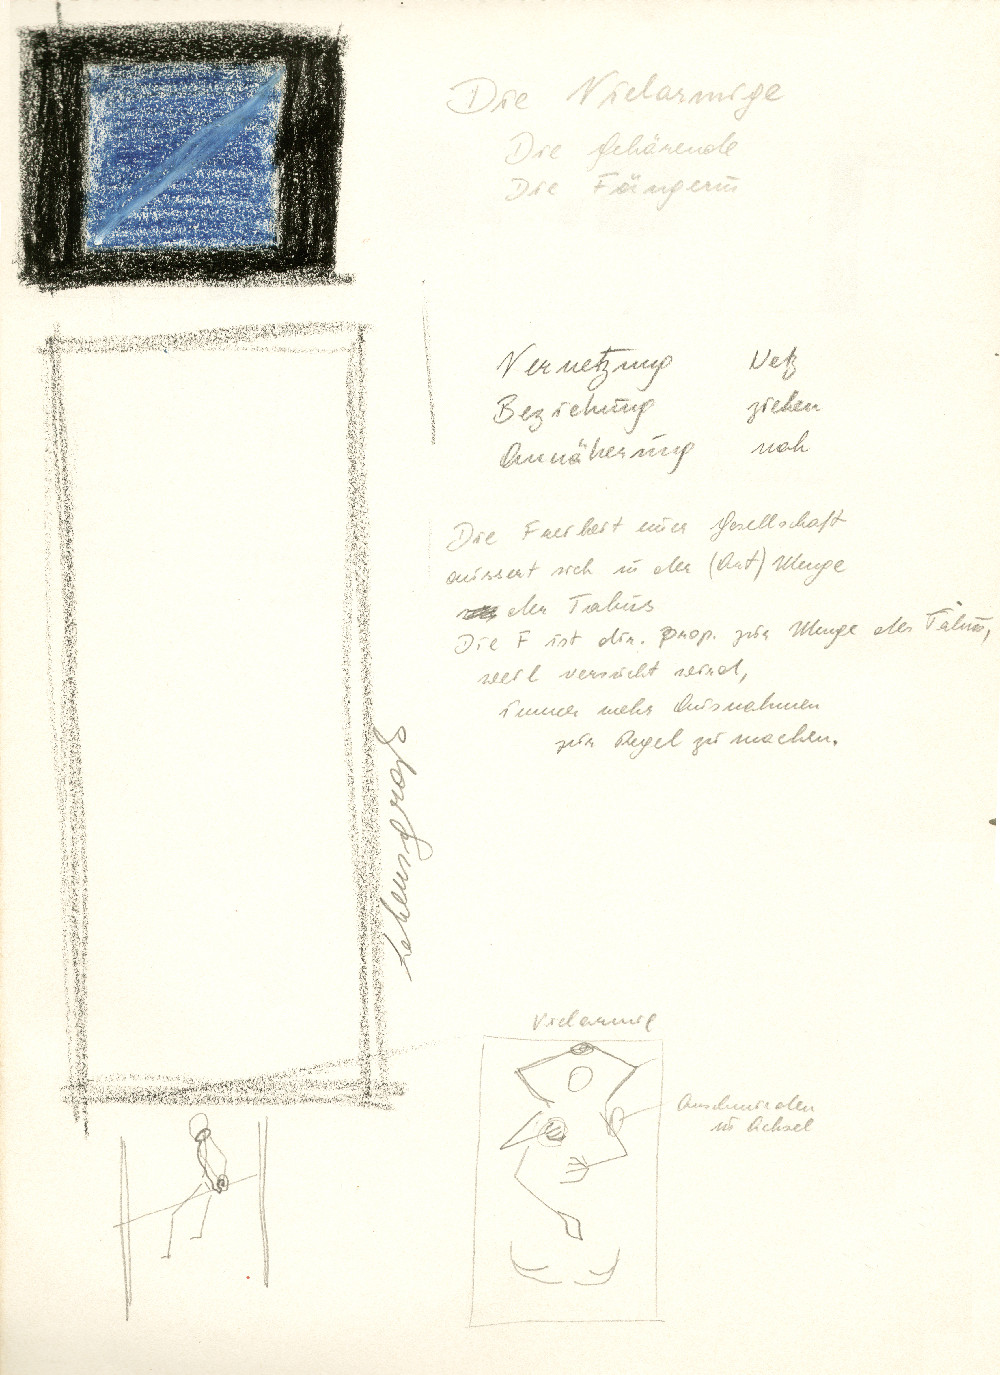 Die Vielarmige
Die Gebärende
Die Fängerin
Vernetzung Netz
Beziehung ziehen
Annäherung nah
Die Freiheit einer Gesellschaft
äussert sich in der (Art) Menge
der Tabus
Die F ist dir. prop. zur Menge der Tabus,
weil versucht wird,
immer mehr Ausnahmen
zur Regel zu machen.
Lebensgroß
Vielarmig
in Achsel